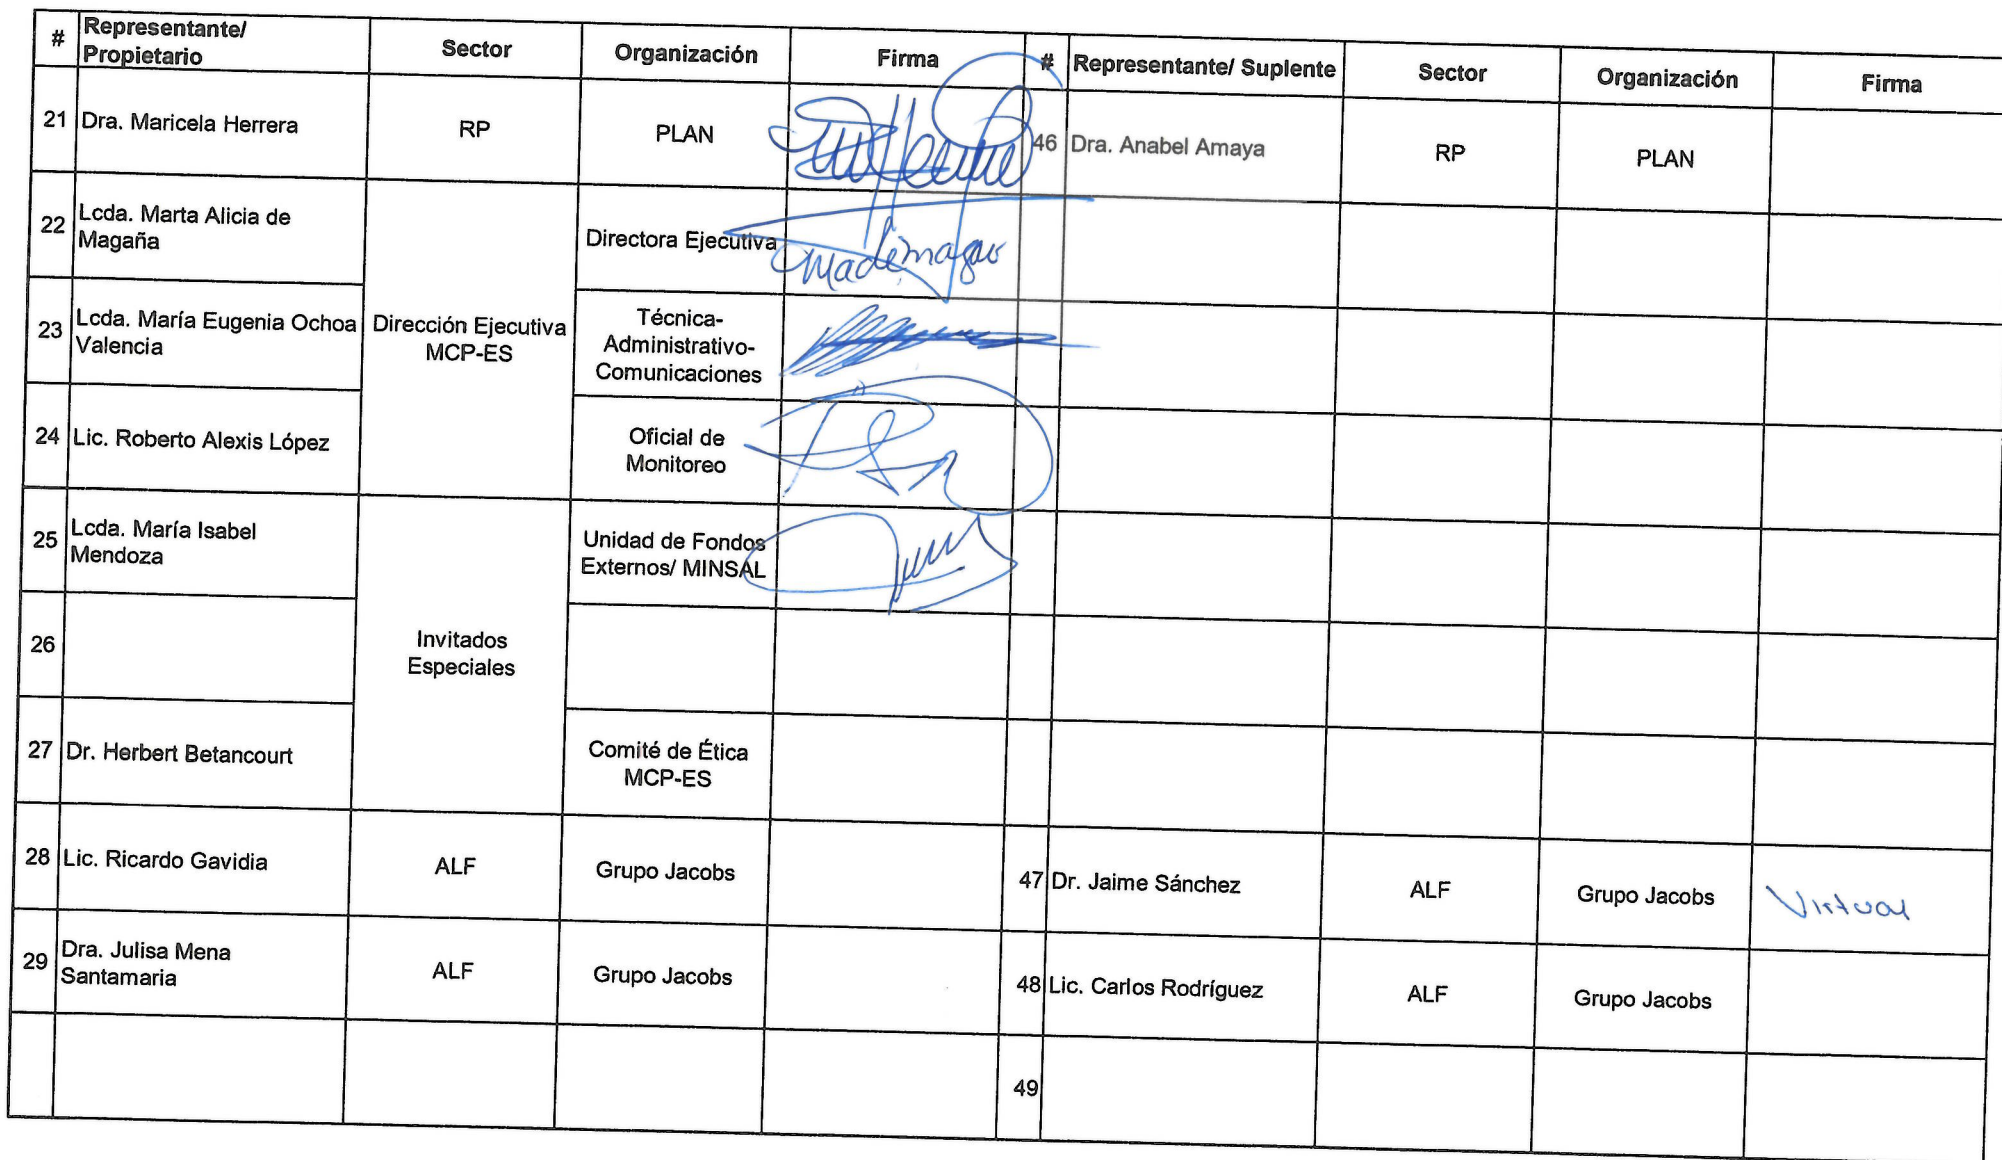 # Representante/ Propietario Sector Organización Firma # Representante/ Suplente Sector Organización Firma
21 Dra. Maricela Herrera RP PLAN 46 Dra. Anabel Amaya RP PLAN
22 Lcda. Marta Alicia de Magaña Directora Ejecutiva
23 Lcda. María Eugenia Ochoa Valencia Dirección Ejecutiva MCP-ES Técnica-Administrativo-Comunicaciones
24 Lic. Roberto Alexis López Oficial de Monitoreo
25 Lcda. María Isabel Mendoza Unidad de Fondos Externos/ MINSAL
26 Invitados Especiales
27 Dr. Herbert Betancourt Comité de Ética MCP-ES
28 Lic. Ricardo Gavidia ALF Grupo Jacobs 47 Dr. Jaime Sánchez ALF Grupo Jacobs Virtual
29 Dra. Julisa Mena Santamaria ALF Grupo Jacobs 48 Lic. Carlos Rodríguez ALF Grupo Jacobs
49